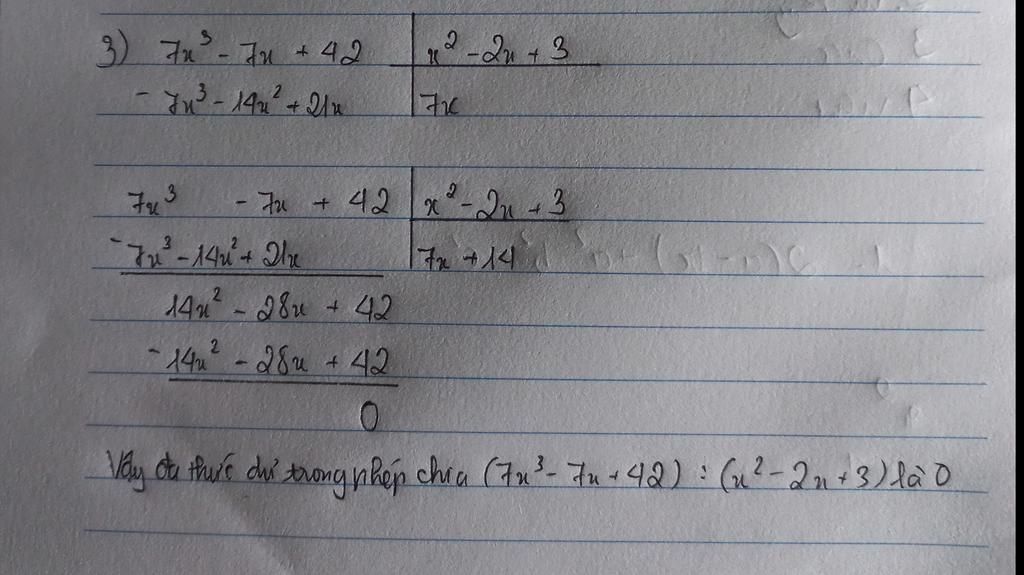 3) 7x³ - 7x + 42 | x² - 2x + 3
- 7x³ - 14x² + 21x | 7x
7x³ - 7x + 42 | x² - 2x + 3
- 7x³ - 14x² + 21x | 7x + 14
14x² - 28x + 42
- 14x² - 28x + 42
0
Vậy đa thức dư trong phép chia (7x³ - 7x + 42) : (x² - 2x + 3) là 0